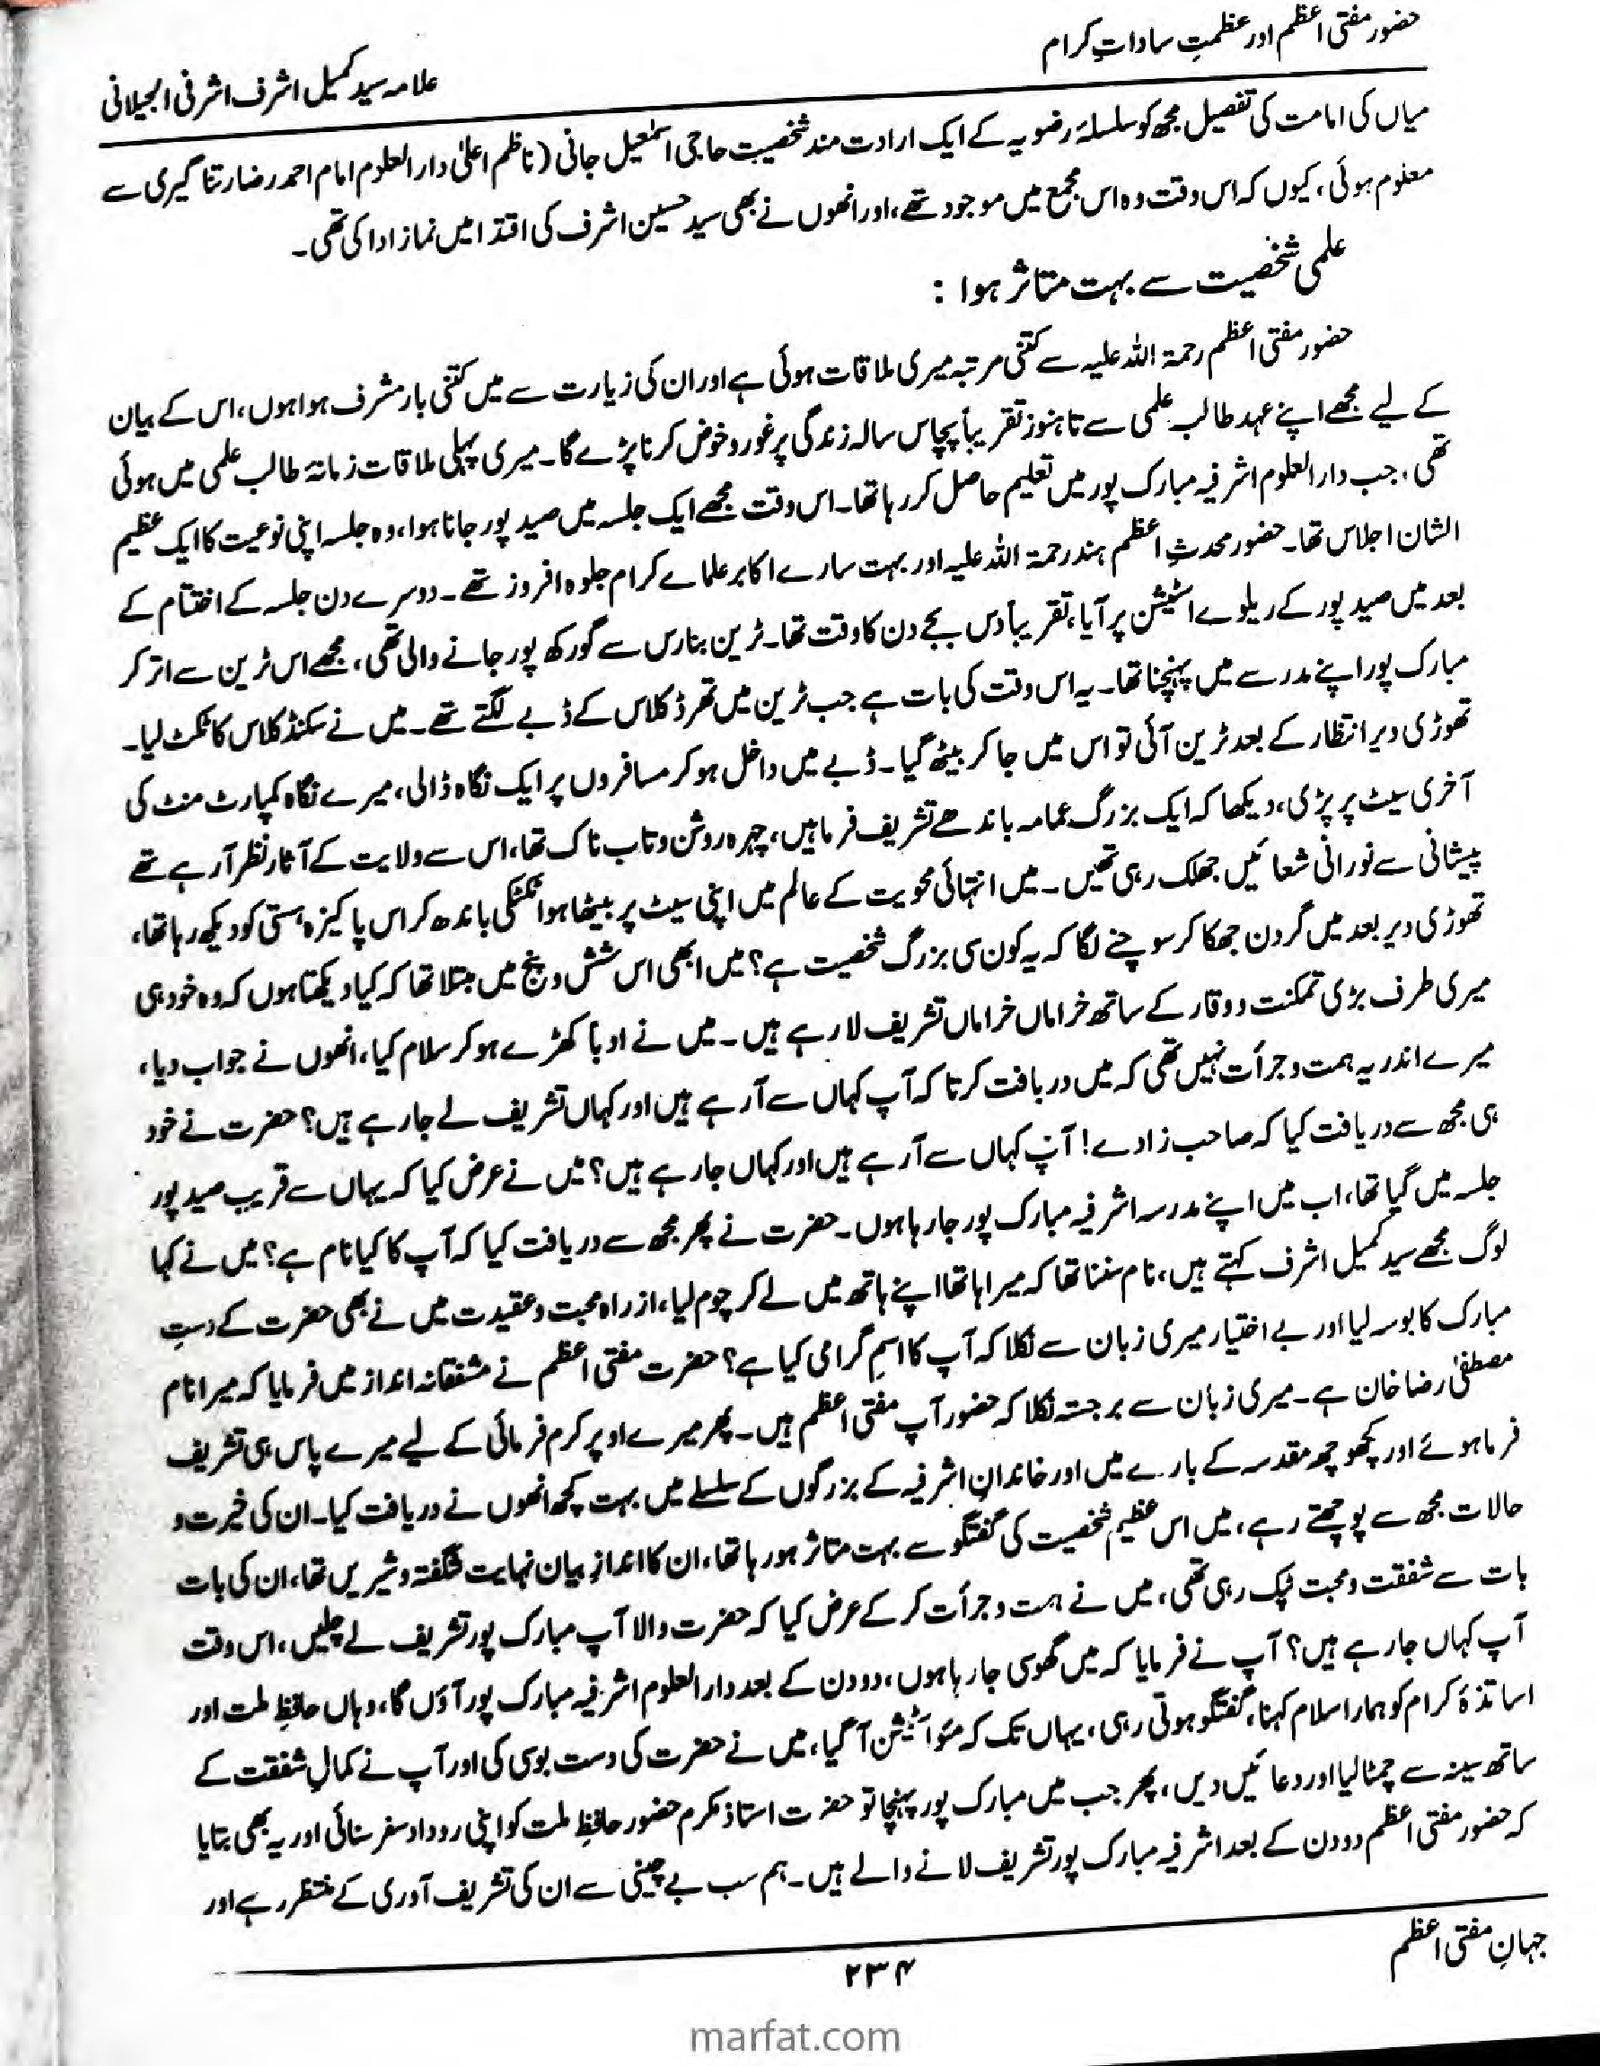 حضور مفتی اعظم اور عظمتِ ساداتِ کرام
علامہ سید کمیل اشرف اشرفی الجیلانی
میاں کی امامت کی تفصیل مجھ کو سلسلۂ رضویہ کے ایک ارادت مند شخصیت حاجی اسمٰعیل جانی (ناظم اعلیٰ دارالعلوم امام احمد رضا رتناگیری سے
معلوم ہوئی، کیوں کہ اس وقت وہ اس مجمع میں موجود تھے، اور انھوں نے بھی سید حسین اشرف کی اقتدا میں نماز ادا کی تھی۔
علمی شخصیت سے بہت متاثر ہوا :
حضور مفتی اعظم رحمۃ اللہ علیہ سے کتنی مرتبہ میری ملاقات ہوئی ہے اور ان کی زیارت سے میں کتنی بار مشرف ہوا ہوں، اس کے بیان
کے لیے مجھے اپنے عہد طالب علمی سے تا ہنوز تقریباً پچاس سالہ زندگی پر غور و خوض کرنا پڑے گا۔ میری پہلی ملاقات زمانۂ طالب علمی میں ہوئی
تھی، جب دارالعلوم اشرفیہ مبارک پور میں تعلیم حاصل کر رہا تھا۔ اس وقت مجھے ایک جلسہ میں صید پور جانا ہوا، وہ جلسہ اپنی نوعیت کا ایک عظیم
الشان اجلاس تھا۔ حضور محدثِ اعظم ہند رحمۃ اللہ علیہ اور بہت سارے اکابر علماے کرام جلوہ افروز تھے۔ دوسرے دن جلسہ کے اختتام کے
بعد میں صید پور کے ریلوے اسٹیشن پر آیا، تقریباً دس بجے دن کا وقت تھا۔ ٹرین بنارس سے گورکھ پور جانے والی تھی، مجھے اس ٹرین سے اتر کر
مبارک پور اپنے مدرسے میں پہنچنا تھا۔ یہ اس وقت کی بات ہے جب ٹرین میں تھرڈ کلاس کے ڈبے لگتے تھے۔ میں نے سکنڈ کلاس کا ٹکٹ لیا۔
تھوڑی دیر انتظار کے بعد ٹرین آئی تو اس میں جا کر بیٹھ گیا۔ ڈبے میں داخل ہو کر مسافروں پر ایک نگاہ ڈالی، میرے نگاہ کمپارٹ منٹ کی
آخری سیٹ پر پڑی، دیکھا کہ ایک بزرگ عمامہ باندھے تشریف فرما ہیں، چہرہ روشن و تاب ناک تھا، اس سے ولایت کے آثار نظر آ رہے تھے
پیشانی سے نورانی شعائیں جھلک رہی تھیں۔ میں انتہائی محویت کے عالم میں اپنی سیٹ پر بیٹھا ہوا ٹکٹکی باندھ کر اس پاکیزہ ہستی کو دیکھ رہا تھا،
تھوڑی دیر بعد میں گردن جھکا کر سوچنے لگا کہ یہ کون سی بزرگ شخصیت ہے؟ میں ابھی اس شش و پنج میں مبتلا تھا کہ کیا دیکھتا ہوں کہ وہ خود ہی
میری طرف بڑی تمکنت و وقار کے ساتھ خراماں خراماں تشریف لا رہے ہیں۔ میں نے ادباً کھڑے ہو کر سلام کیا، انھوں نے جواب دیا،
میرے اندر یہ ہمت و جرأت نہیں تھی کہ میں دریافت کرتا کہ آپ کہاں سے آ رہے ہیں اور کہاں تشریف لے جا رہے ہیں؟ حضرت نے خود
ہی مجھ سے دریافت کیا کہ صاحب زادے! آپ کہاں سے آ رہے ہیں اور کہاں جا رہے ہیں؟ میں نے عرض کیا کہ یہاں سے قریب صید پور
جلسہ میں گیا تھا، اب میں اپنے مدرسہ اشرفیہ مبارک پور جا رہا ہوں۔ حضرت نے پھر مجھ سے دریافت کیا کہ آپ کا کیا نام ہے؟ میں نے کہا
لوگ مجھے سید کمیل اشرف کہتے ہیں، نام سننا تھا کہ میرا ہاتھا اپنے ہاتھ میں لے کر چوم لیا، از راہ محبت و عقیدت میں نے بھی حضرت کے دستِ
مبارک کا بوسہ لیا اور بے اختیار میری زبان سے نکلا کہ آپ کا اسمِ گرامی کیا ہے؟ حضرت مفتی اعظم نے مشفقانہ انداز میں فرمایا کہ میرا نام
مصطفیٰ رضا خان ہے۔ میری زبان سے برجستہ نکلا کہ حضور آپ مفتی اعظم ہیں۔ پھر میرے اوپر کرم فرمائی کے لیے میرے پاس ہی تشریف
فرما ہوئے اور کچھوچھہ مقدسہ کے بارے میں اور خاندانِ اشرفیہ کے بزرگوں کے سلسلے میں بہت کچھ انھوں نے دریافت کیا۔ ان کی خیرت و
حالات مجھ سے پوچھتے رہے، میں اس عظیم شخصیت کی گفتگو سے بہت متاثر ہو رہا تھا، ان کا اندازِ بیان نہایت شگفتہ و شیریں تھا، ان کی بات
بات سے شفقت و محبت ٹپک رہی تھی، میں نے ہمت و جرأت کر کے عرض کیا کہ حضرت والا آپ مبارک پور تشریف لے چلیں، اس وقت
آپ کہاں جا رہے ہیں؟ آپ نے فرمایا کہ میں گھوسی جا رہا ہوں، دو دن کے بعد دارالعلوم اشرفیہ مبارک پور آؤں گا، وہاں حافظِ ملت اور
اساتذۂ کرام کو ہمارا سلام کہنا، گفتگو ہوتی رہی، یہاں تک کہ مئو اسٹیشن آ گیا، میں نے حضرت کی دست بوسی کی اور آپ نے کمالِ شفقت کے
ساتھ سینہ سے چمٹا لیا اور دعائیں دیں، پھر جب میں مبارک پور پہنچا تو حضرت استاذ مکرم حضور حافظِ ملت کو اپنی روداد سفر سنائی اور یہ بھی بتایا
کہ حضور مفتی اعظم دو دن کے بعد اشرفیہ مبارک پور تشریف لانے والے ہیں۔ ہم سب بے چینی سے ان کی تشریف آوری کے منتظر رہے اور
جہانِ مفتی اعظم
۲۳۴
marfat.com